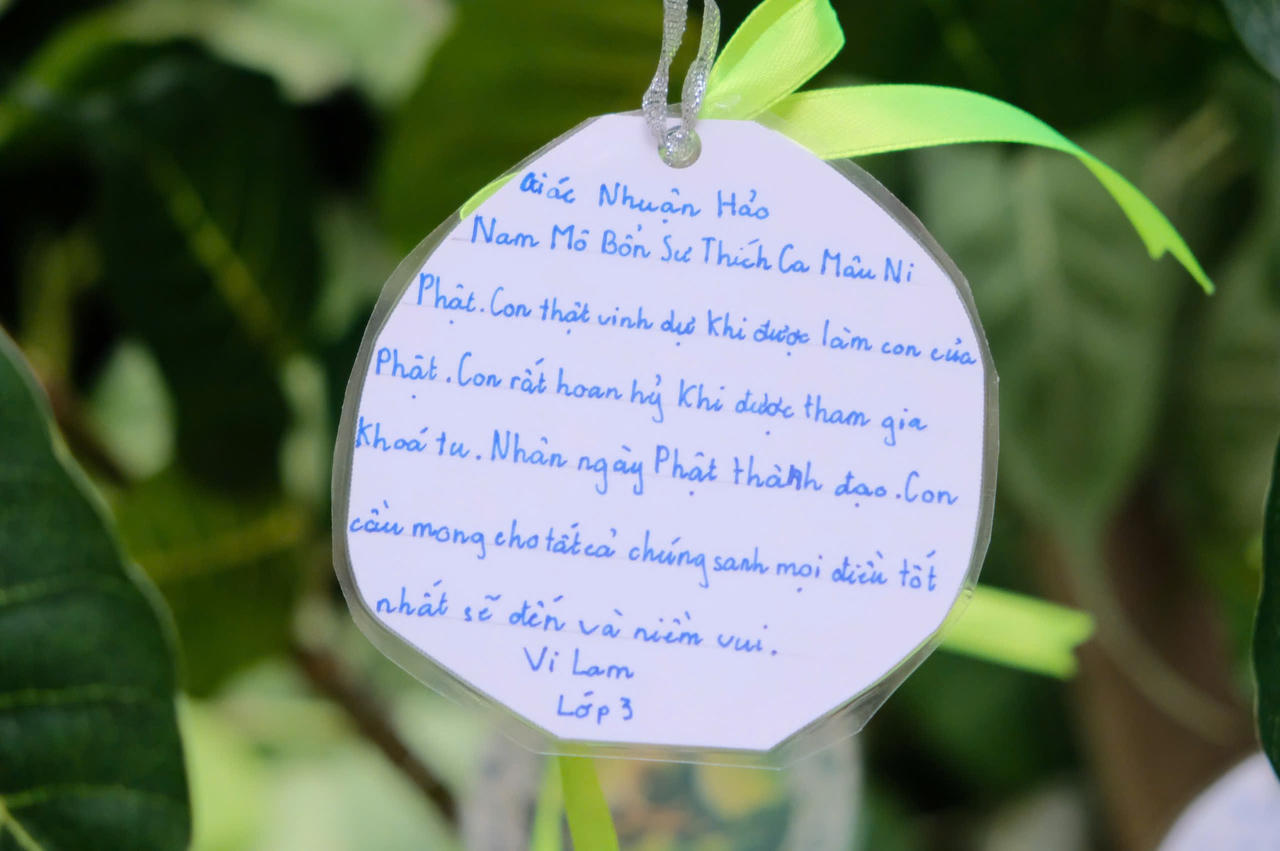 Giác Nhuận Hảo
Nam Mô Bổn Sư Thích Ca Mâu Ni
Phật. Con thật vinh dự khi được làm con của
Phật. Con rất hoan hỷ khi được tham gia
khoá tu. Nhân ngày Phật thành đạo. Con
cầu mong cho tất cả chúng sanh mọi điều tốt
nhất sẽ đến và niềm vui.
Vi Lam
Lớp 3